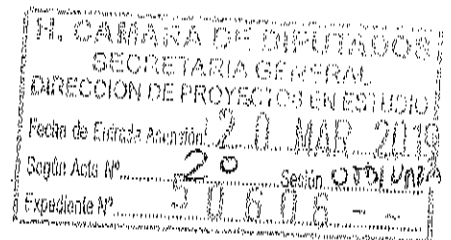 H. CAMARA DE DIPUTADOS
SECRETARIA GENERAL
DIRECCION DE PROYECTOS EN ESTUDIO
Fecha de Entrada Asunción: 20 MAR 2019
Según Acta Nº 2º Sesión ORDINARIA
Expediente Nº